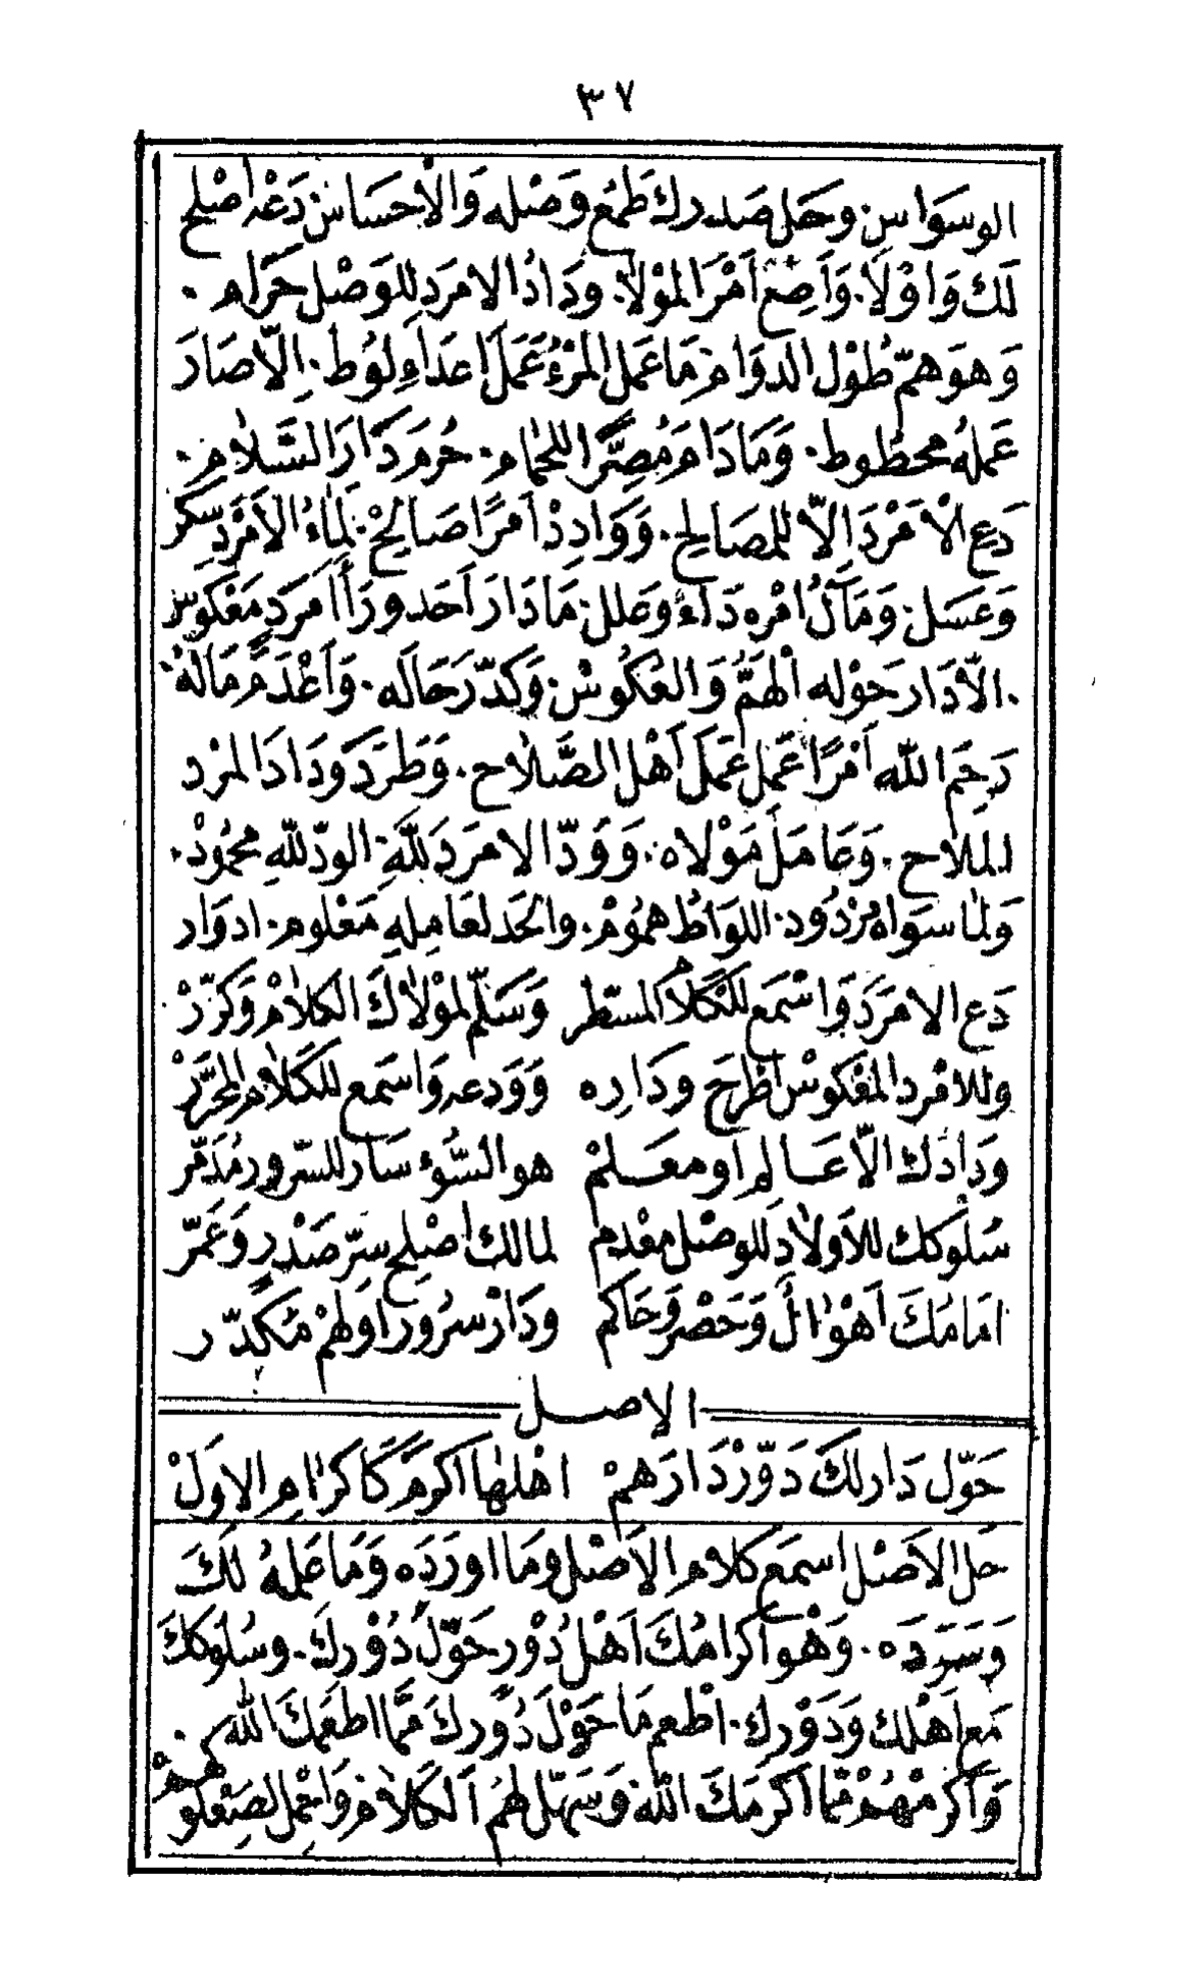 ٣٧
الوسواس وحل صدرك طمع وصله والاحساس دعه اصلح
لك واولا. واصع امر المولا. ووداد الامرد للوصل حرام.
وهو همّ طول الدوام ما عمل المرء عمل اعداء لوط. إلّا صار
عمله محطوط. وما دام مصرّا للحمام. حرم دار السّلام.
دع الامرد الّا للمصالح. ووادد امرا صالح. لماء الامرد سكر
وعسل. ومآل امره داء وعلل ما دار احد ورأ امرد معكوس
. الّا دار حوله الهمّ والعكوس. وكدّر حاله. واعدم ماله
رحم الله امرا عمل عمل اهل الصّلاح. وطرد وداد المرد
الملاح. وعامل مولاه. وودّ الامرد لله الودّ لله محمود.
ولما سواه مردود. اللواط هموم. والحد لعامله معلوم. ادوار
دع الامرد واسمع للكلام المسطر وسلّم لمولاك الكلام وكرّر
وللامرد المعكوس اطرح ودارِه وودعه واسمع للكلام المحرّر
ودادك الّا عالم او معلم هو السّوء سار للسّرور مدمّر
سلوكك للاولاد للوصل معدم لمالك اصلح سرّ صدر وعمّر
امامك اهوال وحصر وحاكم ودار سرور او لهم مكدّر
الاصل
حوّل دار لك دوّر دارهم اهلها اكرم كاكرام الاول
حل الاصل اسمع كلام الاصل وما اورده وما عمله لك
وسرده. وهو اكرامك اهل دور حول دورك. وسلوكك
مع اهلك ودورك. اطعم ما حول دورك ممّا اطعمك الله.
واكرمهم ممّا اكرمك الله وسهّل لهم الكلام واعمل لصعلوكهم